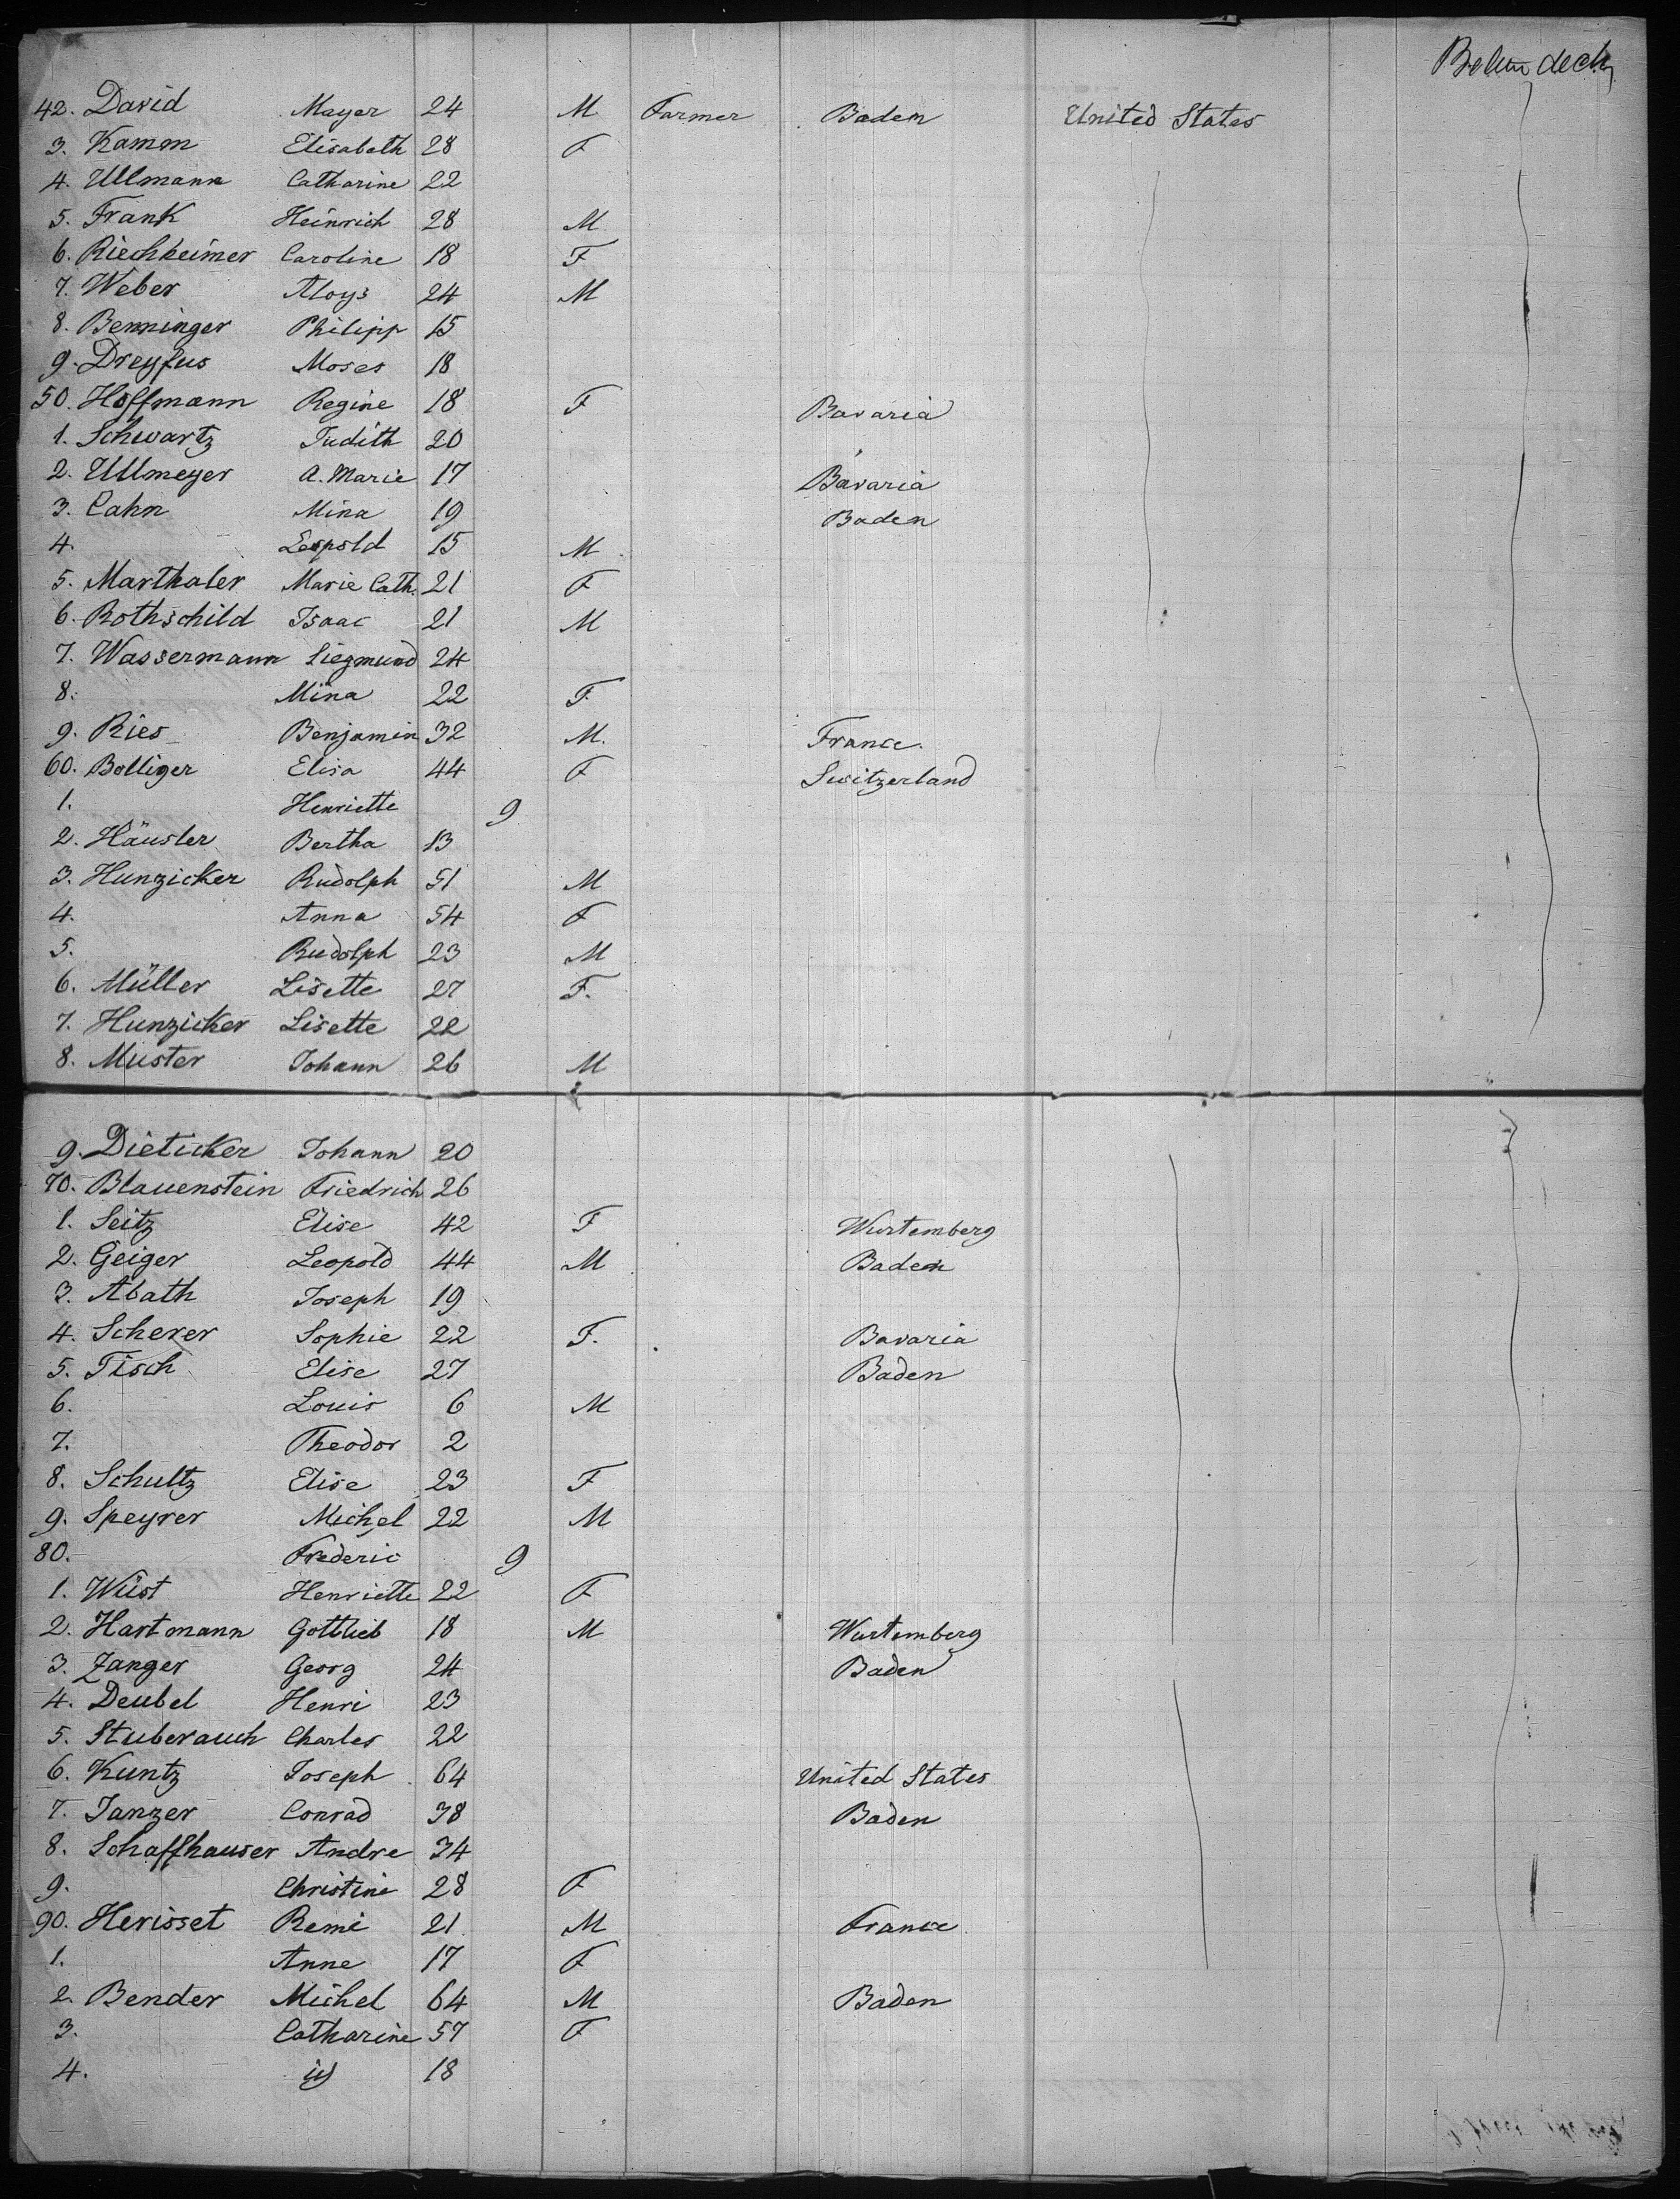 Below deck
42. David Mayer 24 M Farmer Baden United States
3. Kamm Elisabeth 28 F
4. Ullmann Catharine 22
5. Frank Heinrich 28 M
6. Riechheimer Caroline 18 F
7. Weber Aloys 24 M
8. Benninger Philipp 15
9. Dreyfus Moses 18
50. Hoffmann Regine 18 F Bavaria
1. Schwartz Judith 20
2. Ullmeyer A. Marie 17 Bavaria
3. Cahn Mina 19 Baden
4. Leopold 15 M
5. Marthaler Marie Cath. 21 F
6. Rothschild Isaac 21 M
7. Wassermann Siegmund 24
8. Mina 22 F
9. Ries Benjamin 32 M. France.
60. Bolliger Elisa 44 F Switzerland
1. Henriette 9
2. Häusler Bertha 13
3. Hunzicker Rudolph 51 M
4. Anna 54 F
5. Rudolph 23 M
6. Müller Lisette 27 F.
7. Hunzicker Lisette 22
8. Muster Johann 26 M
9. Dieticker Johann 20
70. Blauenstein Friedrich 26
1. Seitz Elise 42 F Wurtemberg
2. Geiger Leopold 44 M Baden
3. Abath Joseph 19
4. Scherer Sophie 22 F. Bavaria
5. Tisch Elise 27 Baden
6. Louis 6 M
7. Theodor 2
8. Schultz Elise 23 F
9. Speyrer Michel 22 M
80. Frederic 9
1. Wüst Henriette 22 F
2. Hartmann Gottlieb 18 M Wurtemberg
3. Zanger Georg 24 Baden
4. Deubel Henri 23
5. Stuberauch Charles 22
6. Kuntz Joseph 64 United States
7. Janzer Conrad 38 Baden
8. Schaffhauser Andre 34
9. Christine 28 F
90. Herisset Remi 21 M France
1. Anne 17 F
2. Bender Michel 64 M Baden
3. Catharine 57 F
4. id 18